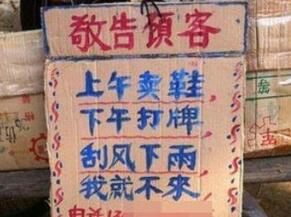 敬告顾客
上午卖鞋,
下午打牌,
刮风下雨,
我就不來
电话: